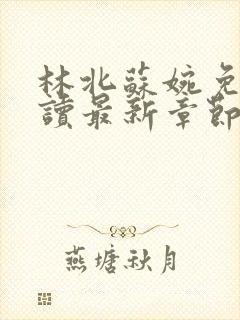 林北蘇婉免
讀最新章節
燕塘秋月